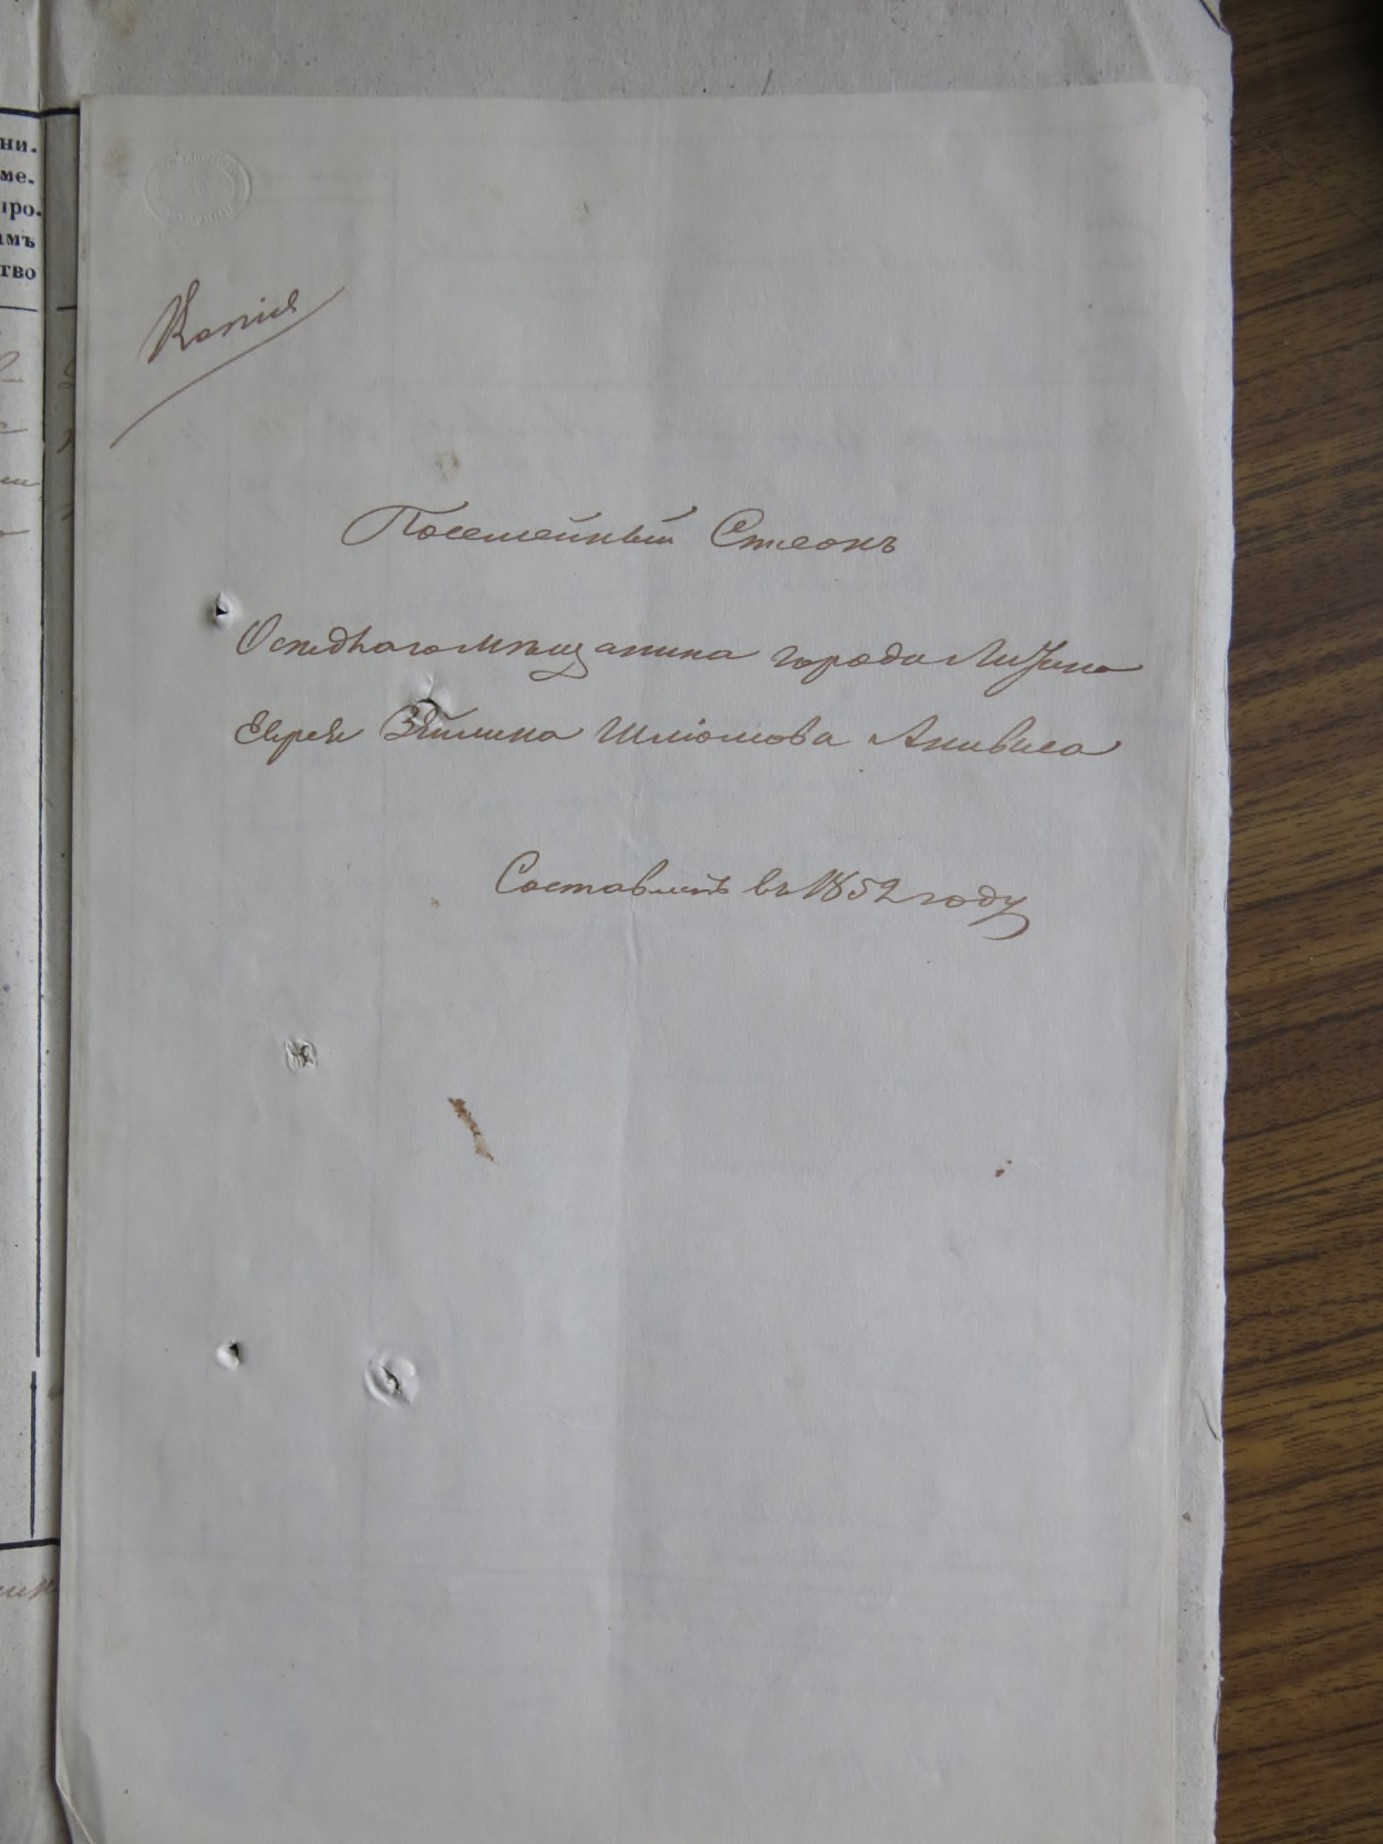 ни.
ме.
про.
имъ
тво
Копія
Посемейный Списокъ
Осѣдлаго мѣщанина города Люцина
Еврея Шліомова
Составленъ въ 1852 году